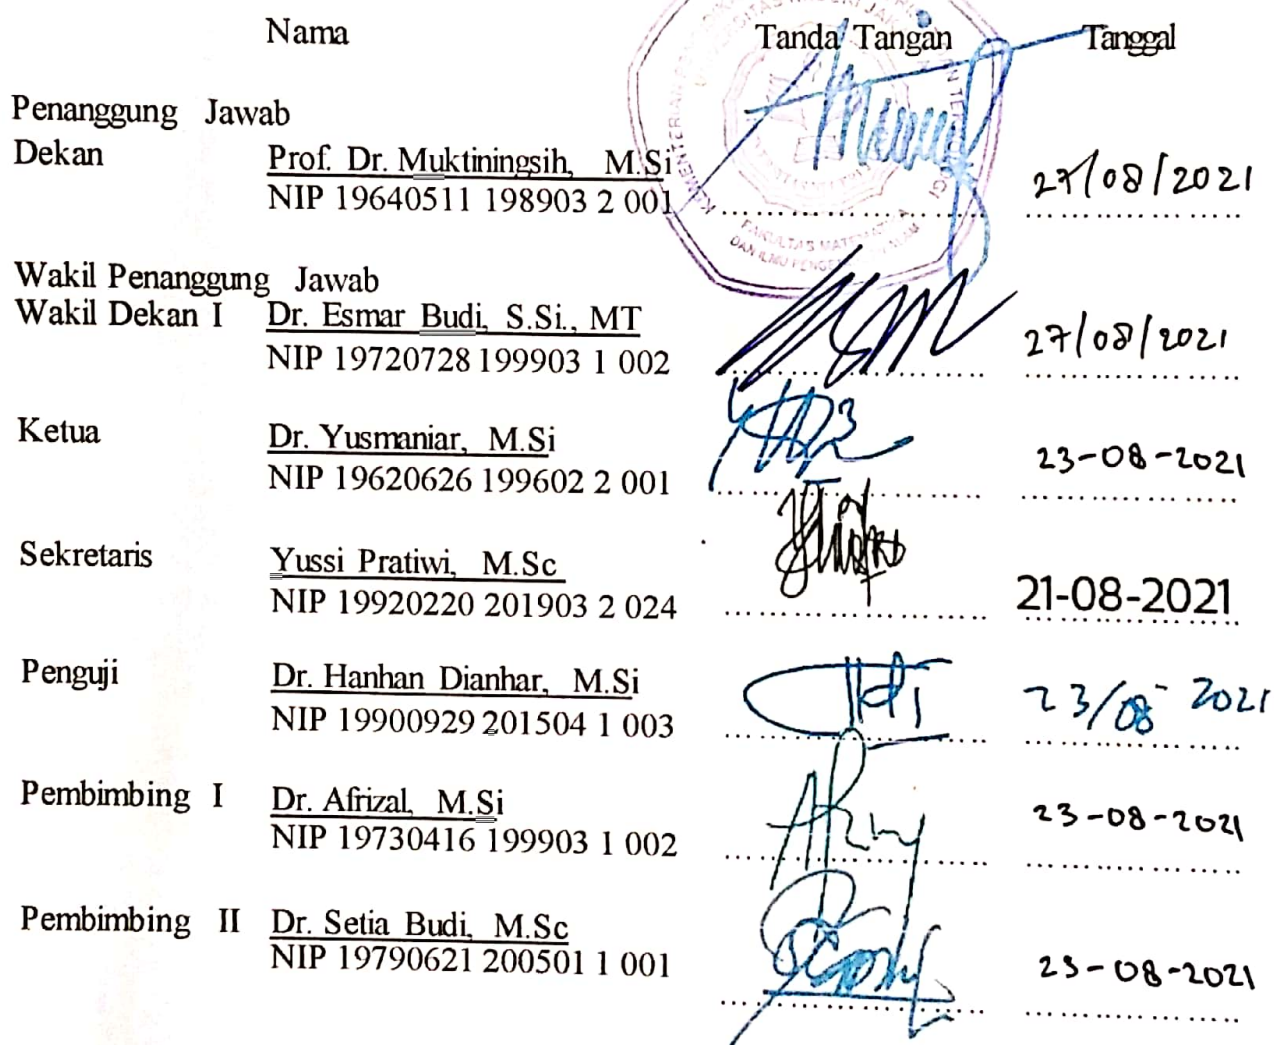 Nama Tanda Tangan Tanggal
Penanggung Jawab
Dekan Prof. Dr. Muktiningsih, M.Si
NIP 19640511 198903 2 001 27/08/2021
Wakil Penanggung Jawab
Wakil Dekan I Dr. Esmar Budi, S.Si., MT
NIP 19720728 199903 1 002 27/08/2021
Ketua Dr. Yusmaniar, M.Si
NIP 19620626 199602 2 001 23-08-2021
Sekretaris Yussi Pratiwi, M.Sc
NIP 19920220 201903 2 024 21-08-2021
Penguji Dr. Hanhan Dianhar, M.Si
NIP 19900929 201504 1 003 23/08 2021
Pembimbing I Dr. Afrizal, M.Si
NIP 19730416 199903 1 002 23-08-2021
Pembimbing II Dr. Setia Budi, M.Sc
NIP 19790621 200501 1 001 23-08-2021
FAKULTAS MATEMATIKA